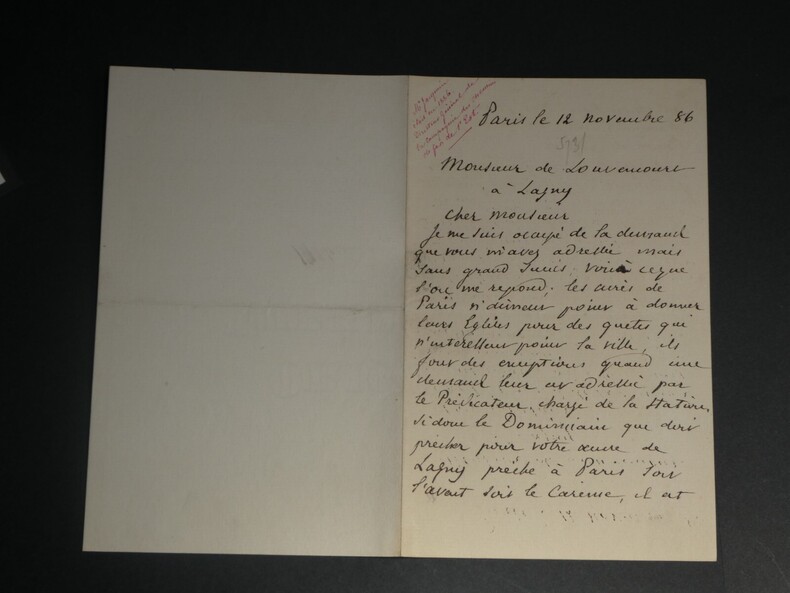 Paris le 12 novembre 86
573/
Monsieur de Louvencourt
à Lagny
Cher Monsieur
Je me suis occupé de la demande
que vous m'avez adressée mais
sans grand succès, voici ce que
l'on me repond; les curés de
Paris n'aiment point à donner
leurs Eglises pour des quetes qui
n'interessent point la ville, ils
font des exceptions quand une
demande leur est adressée par
le Prédicateur chargé de la station,
si donc le Dominicain que doit
prêcher pour votre œuvre de
Lagny prêche à Paris soit
l'avent soit le Carême, il est